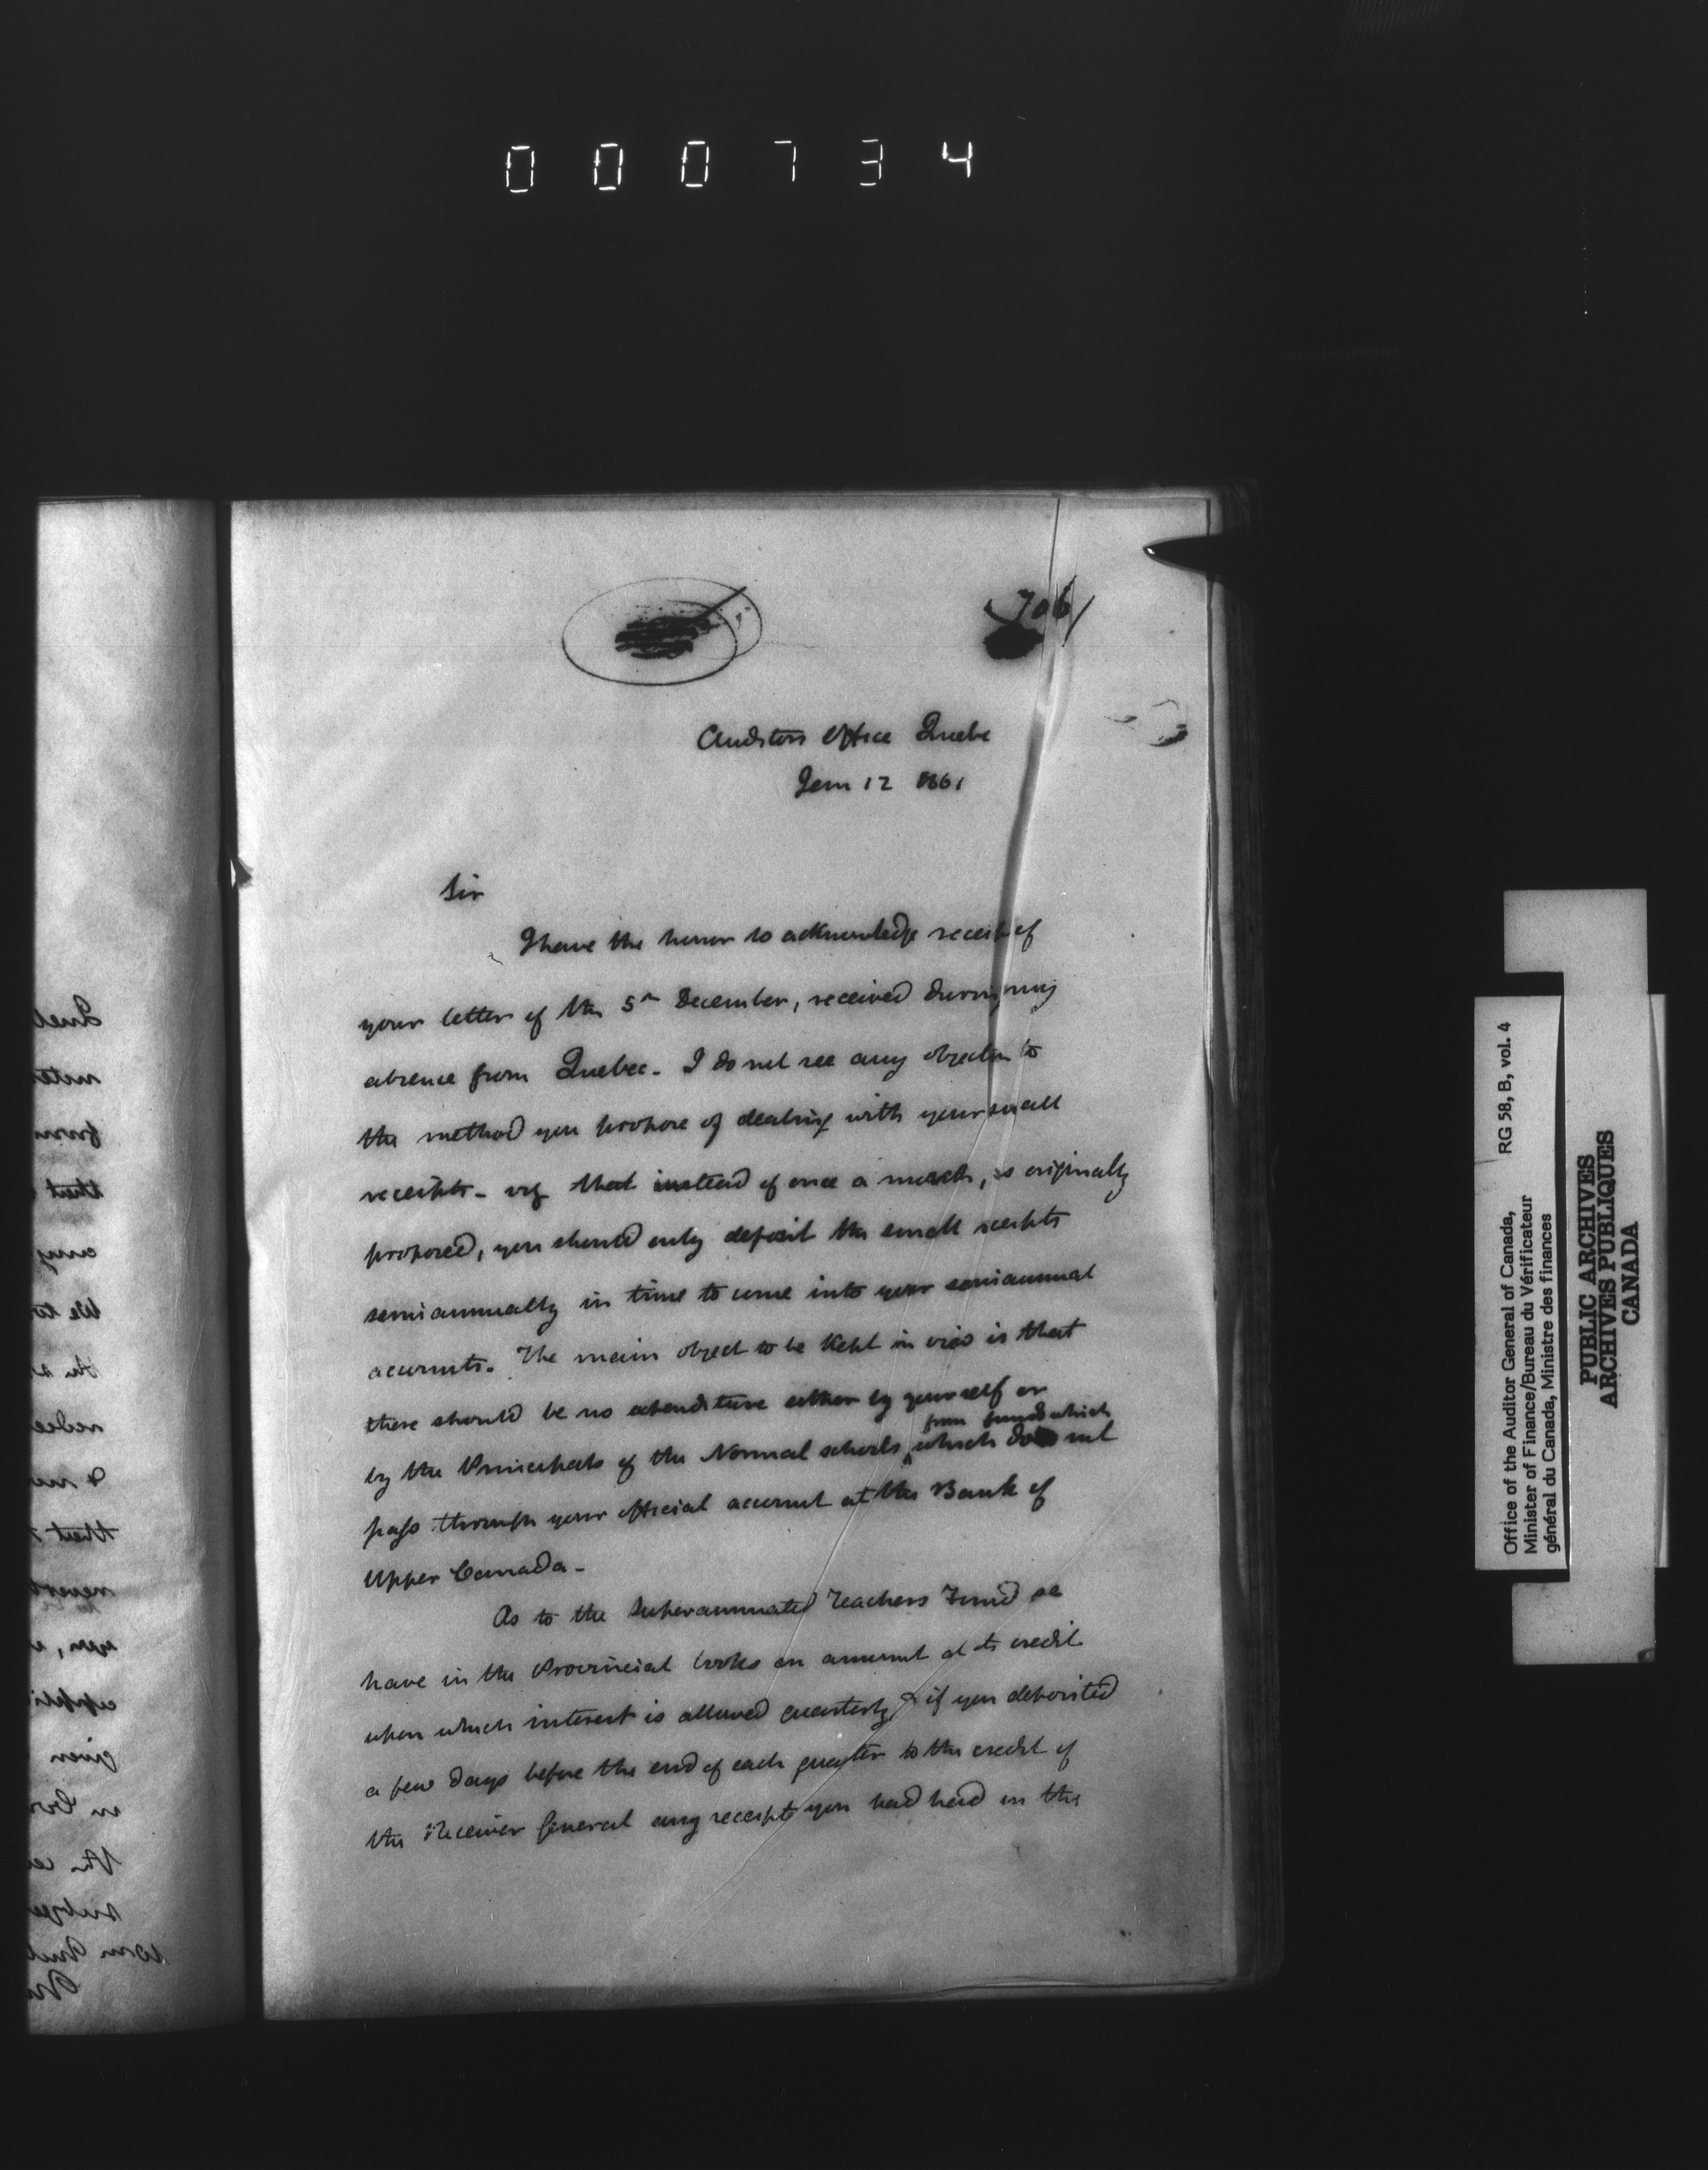 000734
706/
Auditors Office Quebc
Jan 12 1861
Sir
I have the honor to acknowledge receipt of
your letter of the 5th December, received during my
absence from Quebec. I do not see any objection to
the method you propose of dealing with your small
receipts - viz that instead of once a month, as originally
proposed, you should only deposit the small receipts
semiannually in time to come into your semiannual
accounts. The main object to be kept in view is that
there should be no expenditure either by yourself or
from funds which
by the Principals of the Normal schools which do not
pass through your official account at the Bank of
Upper Canada -
As to the Superannuated Teachers Fund we
have in the Provincial books an amount at its credit
upon which interest is allowed quarterly, & if you deposited
a few days before the end of each quarter to the credit of
the Receiver General any receipts you had had in the
RG 58, B, vol. 4
Office of the Auditor General of Canada,
Minister of Finance/Bureau du Vérificateur
général du Canada, Ministre des finances
PUBLIC ARCHIVES
ARCHIVES PUBLIQUES
CANADA